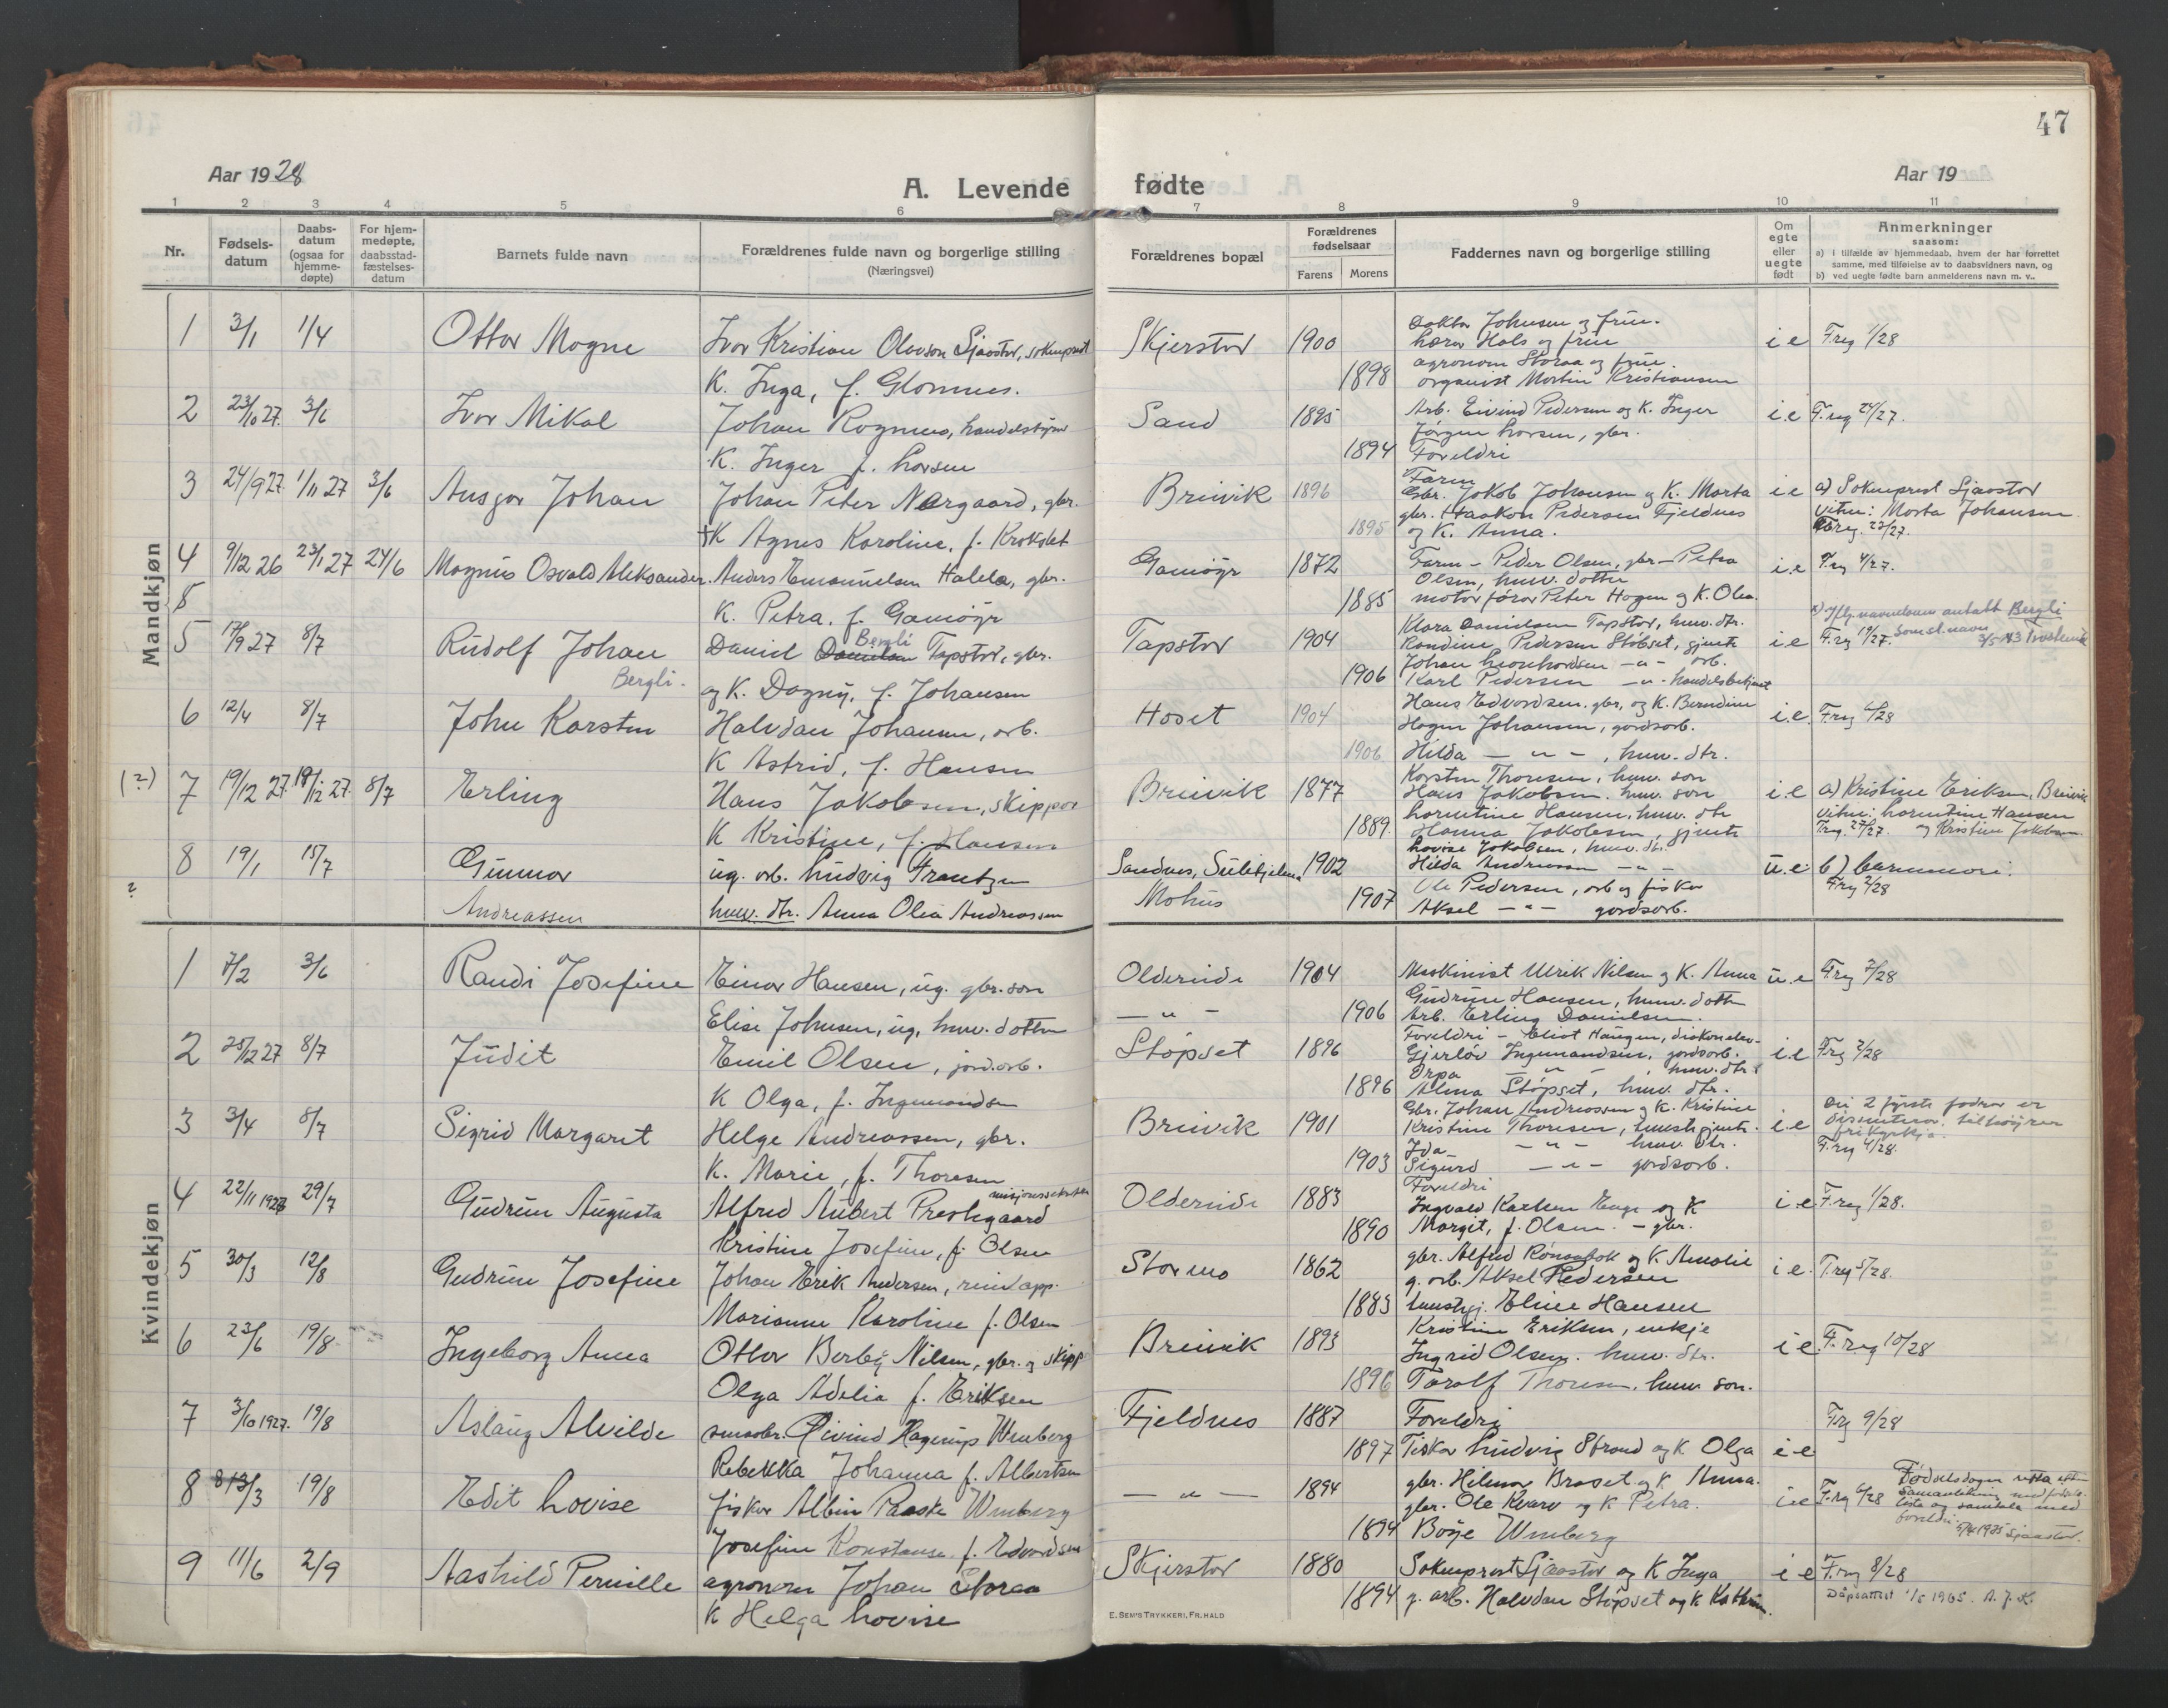 47
Aar 1928
A. Levende
fødte
Aar 19
1 2 3 4 5 6 7 8 9 10 11
Nr.
Fødsels-
datum
Daabs-
datum
(ogsaa for
hjemme-
døpte)
For hjem-
medøpte,
daabsstad-
fæstelses-
datum
Barnets fulde navn
Forældrenes fulde navn og borgerlige stilling
(Næringsvei)
Forældrenes bopæl
Forældrenes
fødselsaar
Farens
Morens
Faddernes navn og borgerlige stilling
Om
egte
eller
uegte
født
Anmerkninger
saasom:
a) i tilfælde av hjemmedaab, hvem der har forrettet
samme, med tilføielse av to daabsvidners navn, og
b) ved uegte fødte barn anmelderens navn m. v..
Mandkjøn
1 3/1 1/4 Ottar Magne Ivar Kristian Olavson Sjaastad, sokneprest Skjerstad 1900
Doktor Johnsen og frue.
lærar Hals og frue
i e F.reg 1/28
K. Inga, f. Glomnes. 1898
agronom Storaa og frue.
organist Martin Kristiansen
2 23/10 27. 3/6 Ivar Mikal Johan Rognnes, handelsstyrar Sand 1895
Arb. Eivind Pedersen og K. Inger
Jørgen Larsen, gbr.
i.e F.reg 24/27.
K. Inger f. Larsen 1894 Foreldri
3 24/9 27. 1/11 27 3/6 Ansgar Johan Johan Peter Norgaard, gbr. Breivik 1896
Faren
Gbr. Jakob Johansen og K. Marta
gbr. Haakon Pedersen Fjeldnes
i e a) Sokneprest Sjaastad
vitne: Marta Johansen
F.reg. 23/27.
K Agnes Karoline, f. Kroksdet 1895 og K. Anna.
4 9/12 26 23/1 27 24/6 Magnus Osvald Aleksander. Anders Emanuelsen Halela, gbr. Gamøyr 1872
Faren - Peder Olsen, gbr - Petra
Olsen, huw. dotter
i.e F.reg 4/27.
5
K. Petra, f. Gamøyr 1885 motorførar Peter Hagen og K. Olea.
5 17/9 27 8/7 Rudolf Johan Daniel Danielsen Bergli Tapstad, gbr. Tapstad 1904
Klara Danielsen Tapstad, huw. dtr.
Randine Pedersen Støbset, gjente
i e F.reg 19/27.
Bergli
Bergli. og K. Dagny, f. Johansen 1906
Johan Leonhardsen - " - arb.
Karl Pedersen - " - handelsbetjent
6 12/4 8/7 John Karsten Halvdan Johansen, arb. Hoset 1904
Hans Edvardsen, gbr, og K. Berndine
Hagen Johansen, gardsarb.
i.e. F.reg 6/28
K Astrid, f. Hansen 1906 Hilda - " - , huw. dtr.
(?) 7 19/12 27 19/12 27. 8/7 Erling Hans Jakobsen, skipper Breivik 1877
Karsten Thoresen, huw. son
Hans Jakobsen. huw. son
i.e a) Kristine Eriksen, Breivik
vitne: Larentine Hansen
F.reg. 27/27. og Kristine Jakobsen
K Kristine, f. Hansen 1889.
Larentine Hansen, huw. dtr
Hanna Jakobsen, gjente
8 19/1 15/7 Gunnar ug. arb. Ludvig Frantzen Sandnes, Sulitjelma 1902
Lovise Jakobsen, huw. dtr.
Hilda Andreassen - " -
u.e. b) barnemori.
F.reg 2/28
?
Andreassen huw. dtr. Anna Olea Andreassen Mohus 1907
Ole Pedersen, arb og fiskar
Aksel - " - gardsarb.
Kvindekjøn
1 7/2 3/6 Randi Josefine Einar Hansen, ug. gbr. son Oldereide 1904 Maskinist Ulrik Nilsen og K. Anna u.e F.reg 7/28
Elise Johnsen, ug. huw. dotter - " - 1906
Gudrun Hansen, huw. dotter
Arb. Erling Danielsen.
2 25/12 27 8/7 Judit Emil Olsen, jord.arb. Støpset 1896
Foreldri - Eliot Haugen, diakonelev-
Gjerløv Ingemandsen, gardsarb.
i.e F.reg 2/28
K Olga, f. Ingemandsen 1896
Orpa - " - , huw. dtr.
Alma Støpset, huw. dtr.
3 3/4 8/7 Sigrid Margaret Helge Andreassen, gbr. Breivik 1901
Gbr. Johan Andreassen og K. Kristine
Kristine Thoresen, huushgjente.
i e Dei 2 fyrste fadrar er
dissenterar, tilhøyrer
frikyrkja.
F.reg 4/28.
K. Marie, f. Thoresen 1903
Ida - " - huw. dtr.
Sigurd - " - gardsarb.
4 22/11 1927 29/7 Gudrun Augusta Alfred Aubert Prestegaard misjonssekretær Oldereide 1883
Foreldri
Ingvald Karlsen Enge og K
i e F.reg 1/28.
Kristine Josefine, f. Olsen 1890 Margit, f. Olsen. - gbr.
5 30/3 12/8 Gudrun Josefine Johan Erik Andersen, reindapp. Stormo 1862
gbr. Alfred Rønsaabok og K. Amalie
g. arb. Aksel Pedersen
i e. F.reg 5/28.
Marianne Karoline f. Olsen 1883 hushgj. Eline Hansen
6 23/6 19/8 Ingeborg Anna Ottar Berby Nilsen, gbr. og skipp Breivik 1893
Kristine Eriksen, enkje
Ingrid Olsen. huw. dtr.
i e F.reg 10/28
Olga Adelia f. Eriksen 1896 Taralf Thoresen. huw. son.
7 3/10 1927. 19/8 Aslaug Alvilde smaabr. Øivind Hagerup Wenberg Fjeldnes 1887 Foreldri F.reg 9/28
Rebekka Johanna f. Albertsen 1897 Fiskar Ludvig Strand og K. Olga i e
8 13/3 19/8 Edit Lovise fiskar Albin Paaske Wenberg - " - 1894
gbr. Helmar Braset og K. Anna.
gbr. Ole Kvarv og K Petra.
i.e F.reg 6/28 Fødselsdagen retta etter
samanlikning med fødsels-
lista og samtala med
foreldri. 5/4 1935 Sjaastad.
Josefine Konstanse f. Edvardsen 1894 Borje Wenberg
9 11/6 2/9 Aashild Pernille agronom Johan Storaa Skjerstad 1880 Sokneprest Sjaastad og K Inga i e F.reg 8/28
K Helga Lovise 1894 g. arb. Halvdan Støpset og K Kathrine. Dåpsattest 1/5 1965. A. J. K.
E. SEM'S TRYKKERI, FR. HALD